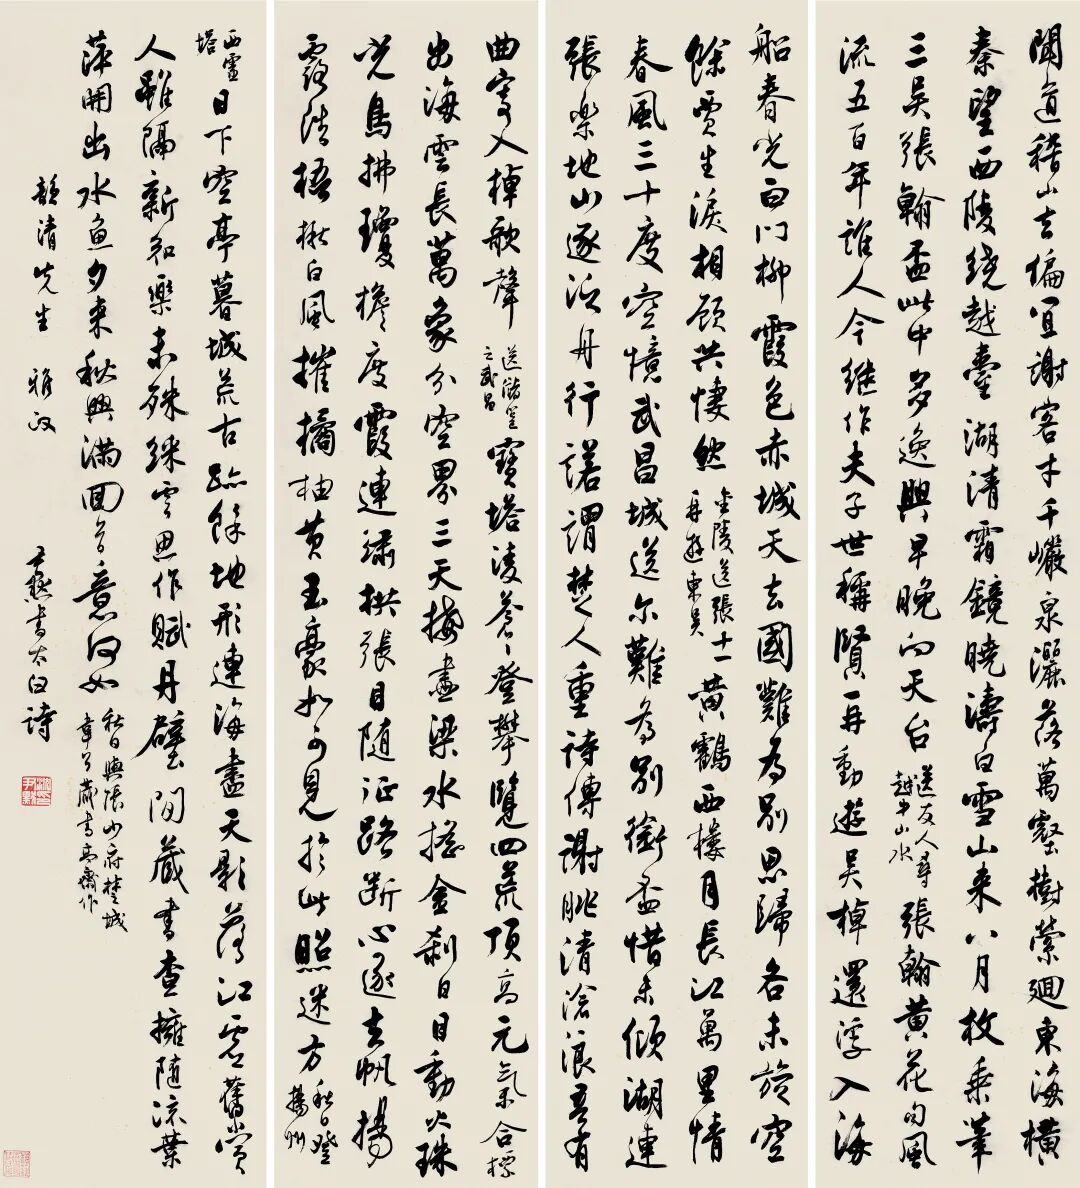 聞道稽山去偏宜謝客才千巖泉灑落萬壑樹縈迴東海橫
秦望西陵繞越臺湖清霜鏡曉濤白雪山來八月枚乘筆
三吳張翰盃此中多逸興早晚向天台 送友人尋越中山水 張翰黃花句風
流五百年誰人今繼作夫子世稱賢再動遊吳棹還浮入海
船春光白門柳霞色赤城天去國難為別思歸各未旋空
餘賈生淚相顧共悽然 金陵送張十一再遊東吳 黃鶴西樓月長江萬里情
春風三十度空憶武昌城送爾難為別銜盃惜未傾湖連
張樂地山逐泛舟行諾謂楚人重詩傳謝朓清滄浪吾有
曲寄入棹歌聲 送儲邕之武昌 寶塔凌蒼〻登攀覽四荒頂高元氣合標
出海雲長萬象分空界三天接畫梁水搖金剎日目動火珠
光鳥拂瓊檐度霞連繡栱張目隨征路斷心逐去帆揚
露浩梧楸白風摧橘柚黃玉毫如可見於此照迷方 秋日登揚州
西靈塔 日下空亭暮城荒古跡餘地形連海盡天影落江虛舊賞
人雖隔新知樂未殊綵雲思作賦丹壁間藏書查擁隨流葉
萍開出水魚夕來秋興滿回首意何如 秋日與張少府楚城韋公藏書高齋作
清先生 雅政 尹默書太白詩